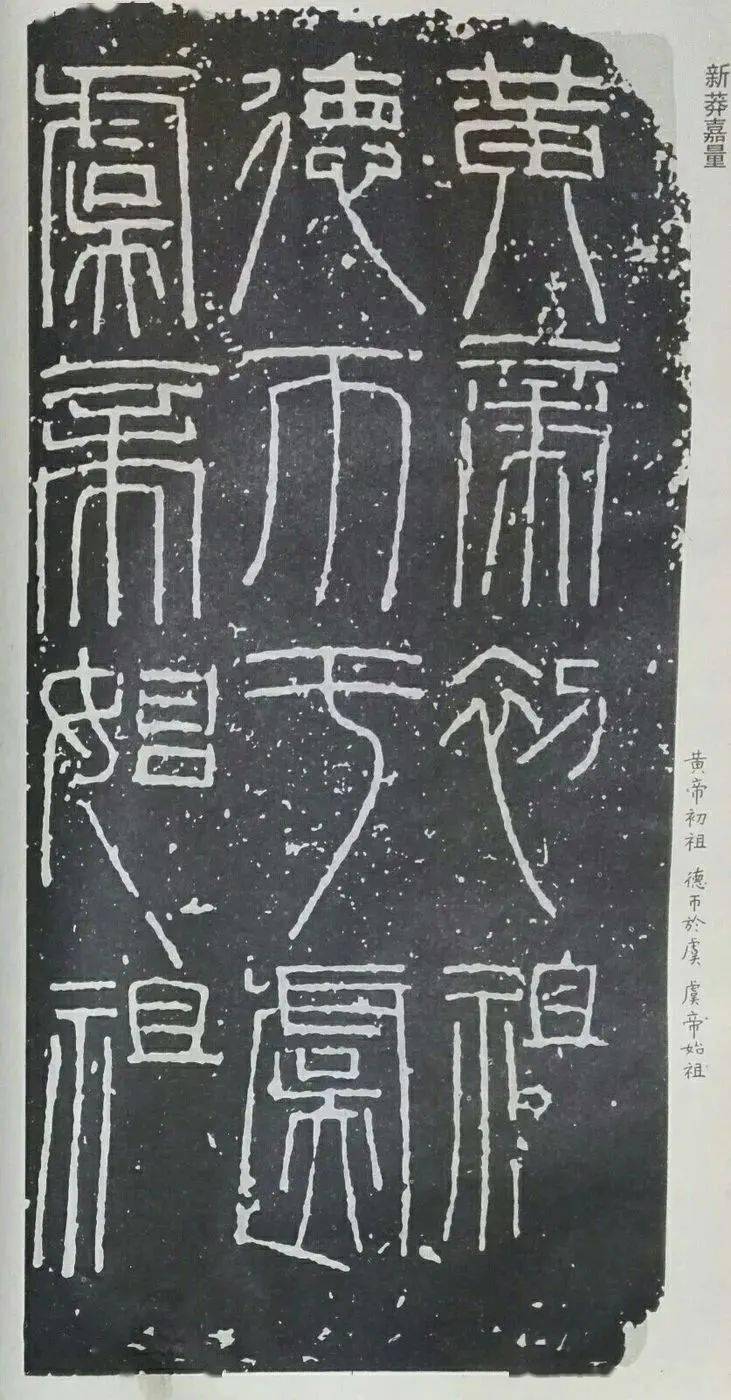 新莽嘉量
黄帝初祖
德帀于虞
虞帝始祖
黄帝初祖 德帀於虞 虞帝始祖